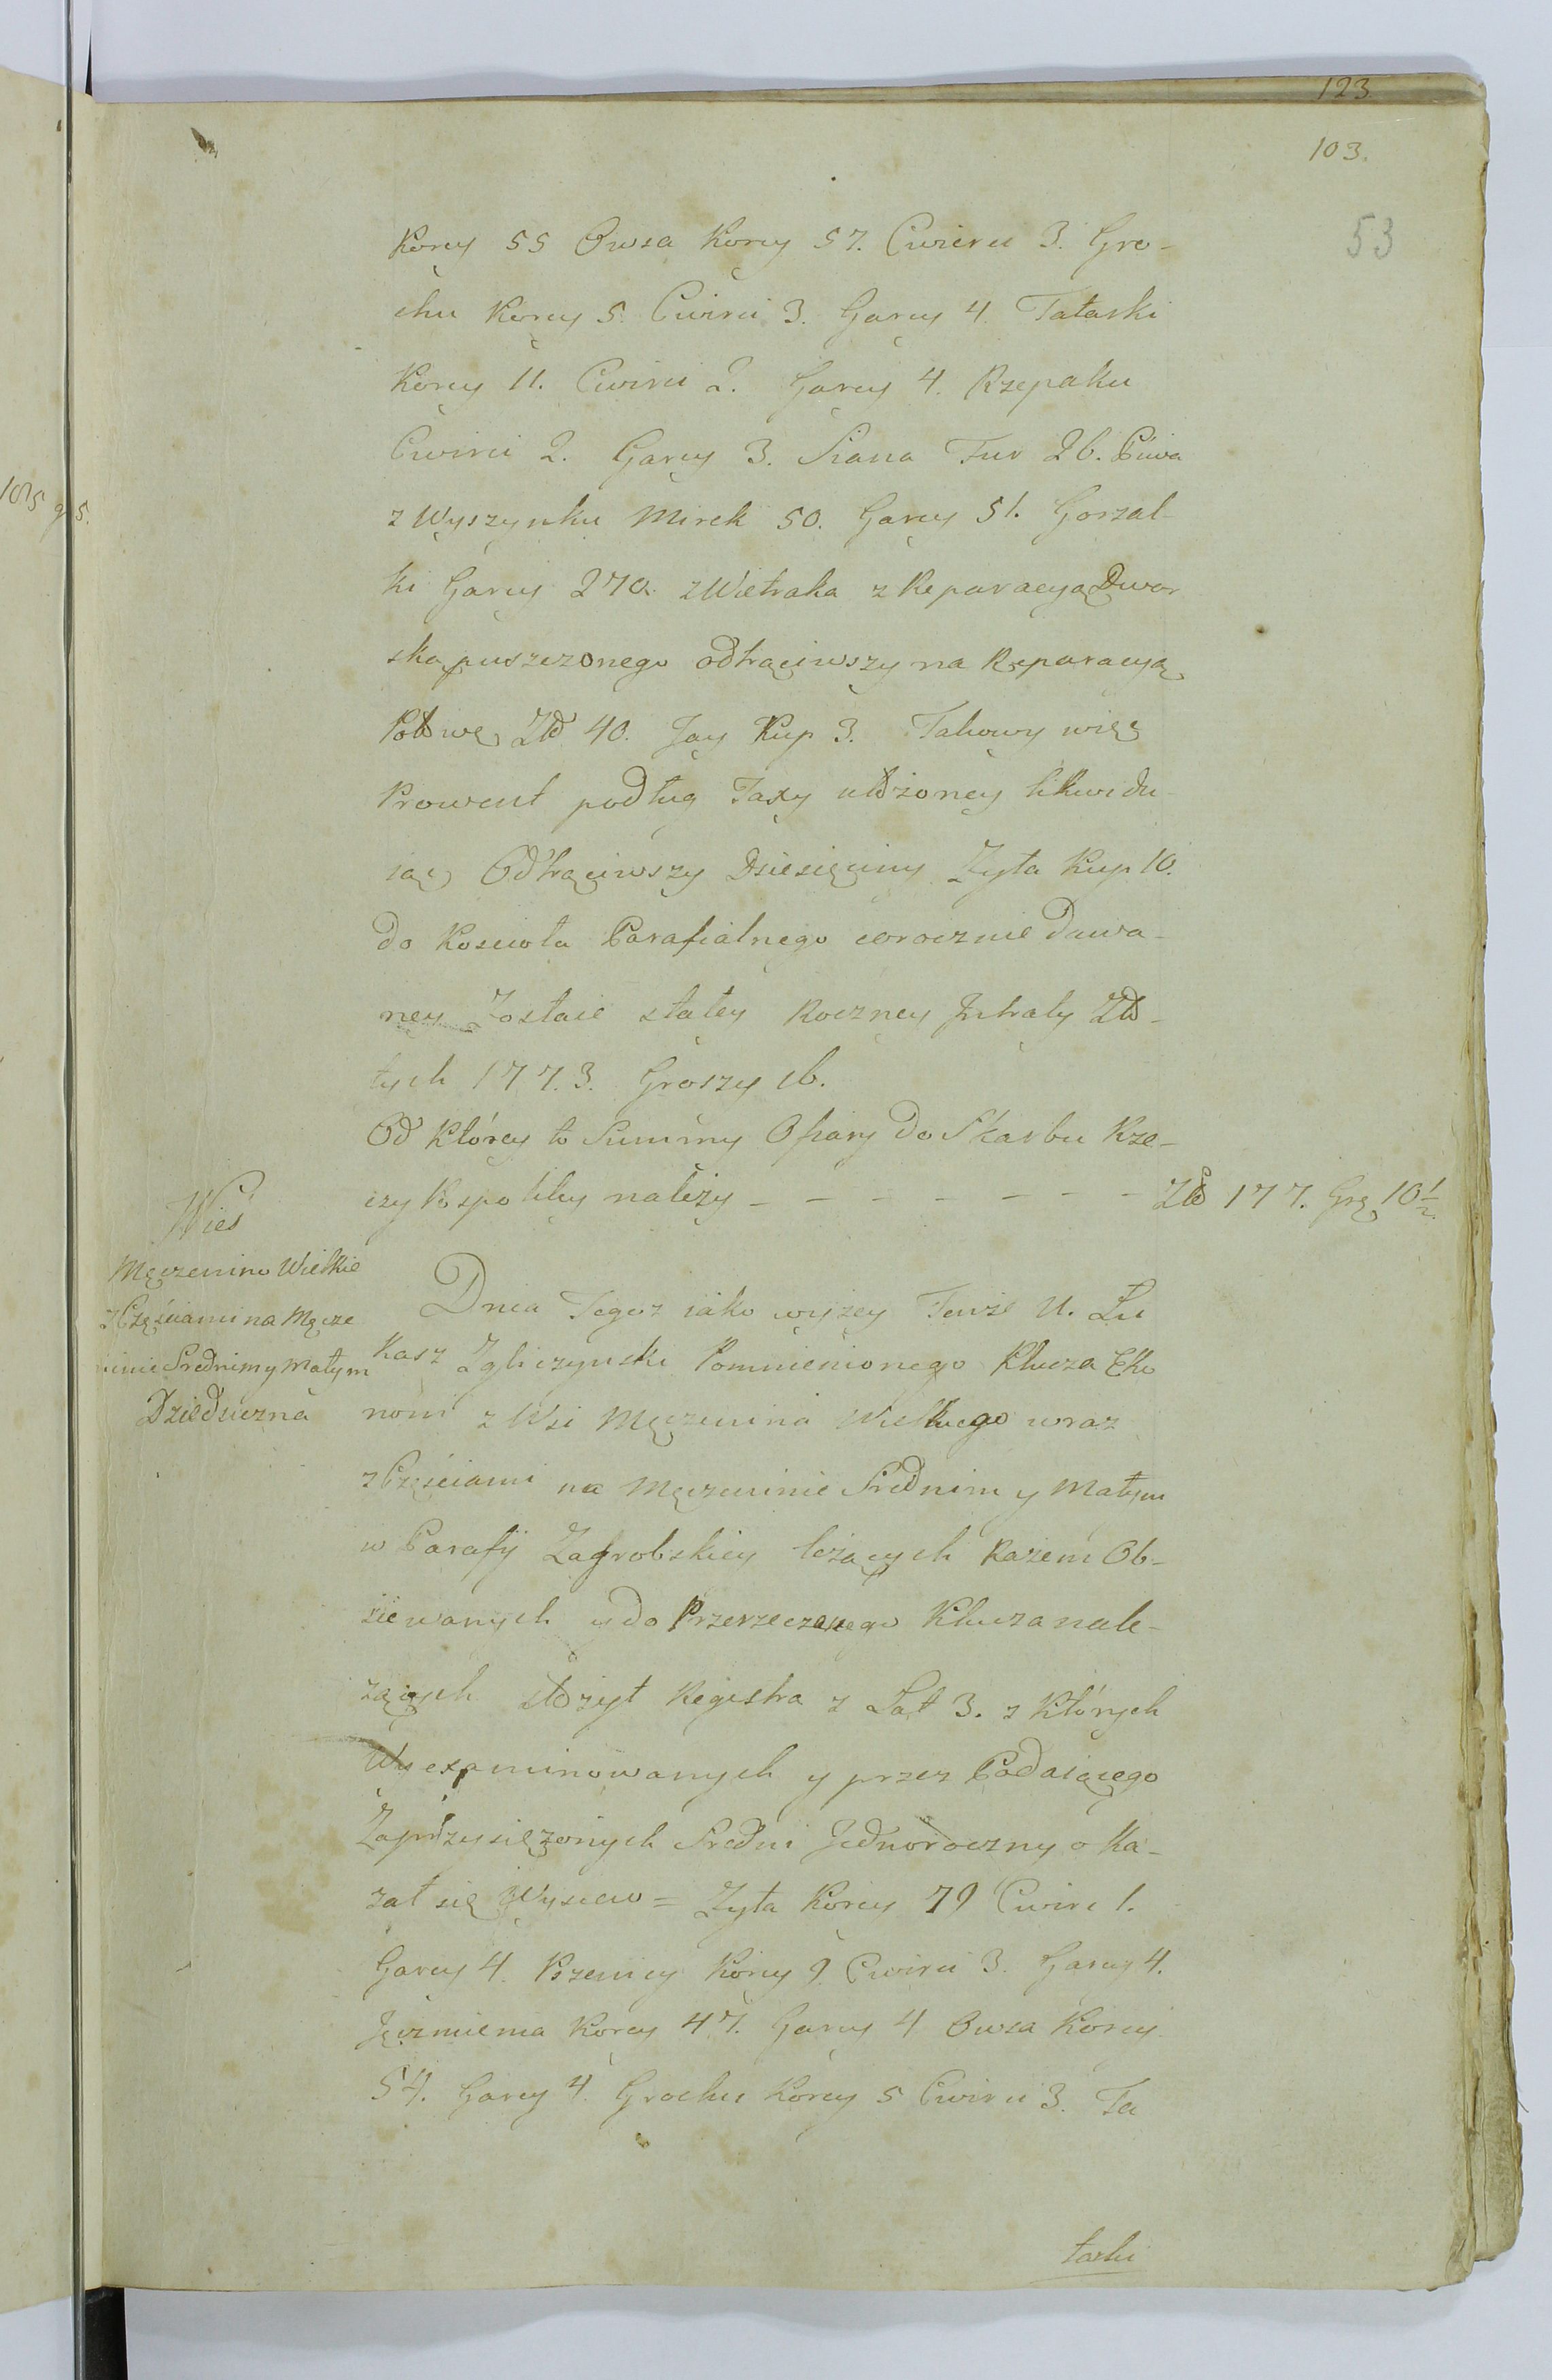 123.
103.
53
Korcy 55 Owsa Korcy 57. Cwierci 3. Gro-
chu Korcy 5. Cwirci 3. Garcy 4. Tatarki
Korcy 11. Cwirci 2. Garcy 4. Rzepaku
Cwirci 2. Garcy 3. Siana Fur 26. Piwa
z Wyszynku Mirek 50. Garcy 51. Gorzał-
ki Garcy 270. z Wietraka z Reparacyą Dwor
ską puszczonego odtrąciwszy na Reparacyą
Połowę Zło 40. Jay Kup 3. Takowy więc
Prowent podług Taxy ułożoney likwidu-
iąc, Odtrąciwszy Dziesięciny Zyta Kup 10.
do Kościoła Parafialnego corocznie Dawa-
ney Zostaie stałey Roczney Intraty Zło-
tych 1773. Groszy 16.
Od którey to Summy Ofiary do Skarbu Rze-
czy Pospolitey należy - - - - - - - Zło 177. Grę 10 1/2.
Wieś
Męczenino Wielkie
z Częściami na Męcze
ninie Srednim y Małym
Dziedziczna
Dnia Tegoż iako wyżey Tenże U. Łu
kasz Zgliczynski Pomnienionego Klucza Eko
nom z Wsi Męczenina Wielkiego wraz
z Częściami na Męczeninie Srednim y Małym
w Parafij Zagrobskiey leżących Razem Ob-
siewanych y do Przerzeczonego Klucza nale-
żących złożył Regestra z Lat 3. z których
Wyexaminowanych y przez Podaiącego
Zaprzysiężonych Sredni Jednoroczny oka-
zał się Wysiew = Zyta Korcy 79 Cwirc 1.
Garcy 4. Pszenicy Korcy 9. Cwirci 3. Garcy 4.
Jęczmienia Korcy 47. Garcy 4 Owsa Korcy
54. Garcy 4. Grochu Korcy 5 Cwirci 3. Ta
tarki